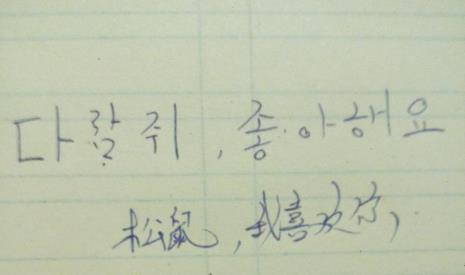 다람쥐, 좋아해요
松鼠,我喜欢你,